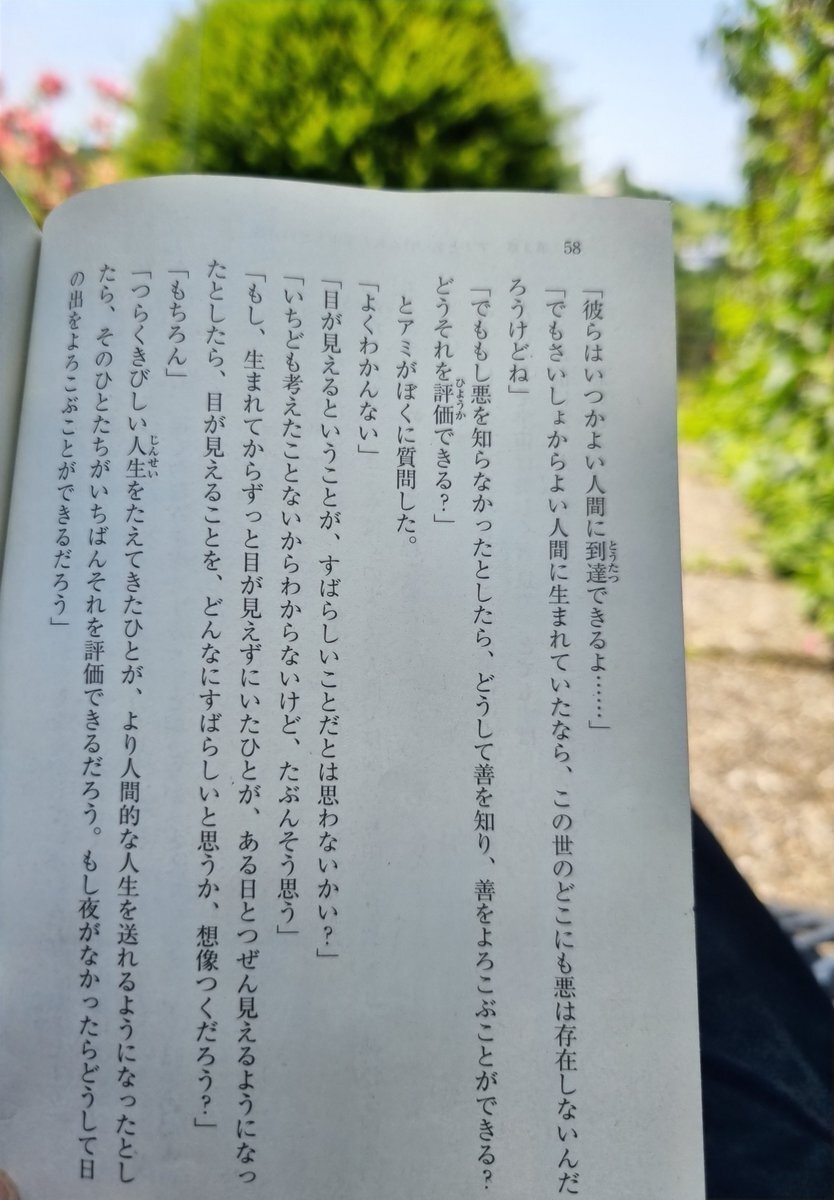 58
「彼らはいつかよい人間に到達できるよ……」
「でもさいしょからよい人間に生まれていたなら、この世のどこにも悪は存在しないんだ
ろうけどね」
「でももし悪を知らなかったとしたら、どうして善を知り、善をよろこぶことができる？
どうそれを評価できる？」
とアミがぼくに質問した。
「よくわかんない」
「目が見えるということが、すばらしいことだとは思わないかい？」
「いちども考えたことないからわからないけど、たぶんそう思う」
「もし、生まれてからずっと目が見えずにいたひとが、ある日とつぜん見えるようになっ
たとしたら、目が見えることを、どんなにすばらしいと思うか、想像つくだろう？」
「もちろん」
「つらくきびしい人生をたえてきたひとが、より人間的な人生を送れるようになったとし
たら、そのひとたちがいちばんそれを評価できるだろう。もし夜がなかったらどうして日
の出をよろこぶことができるだろう」